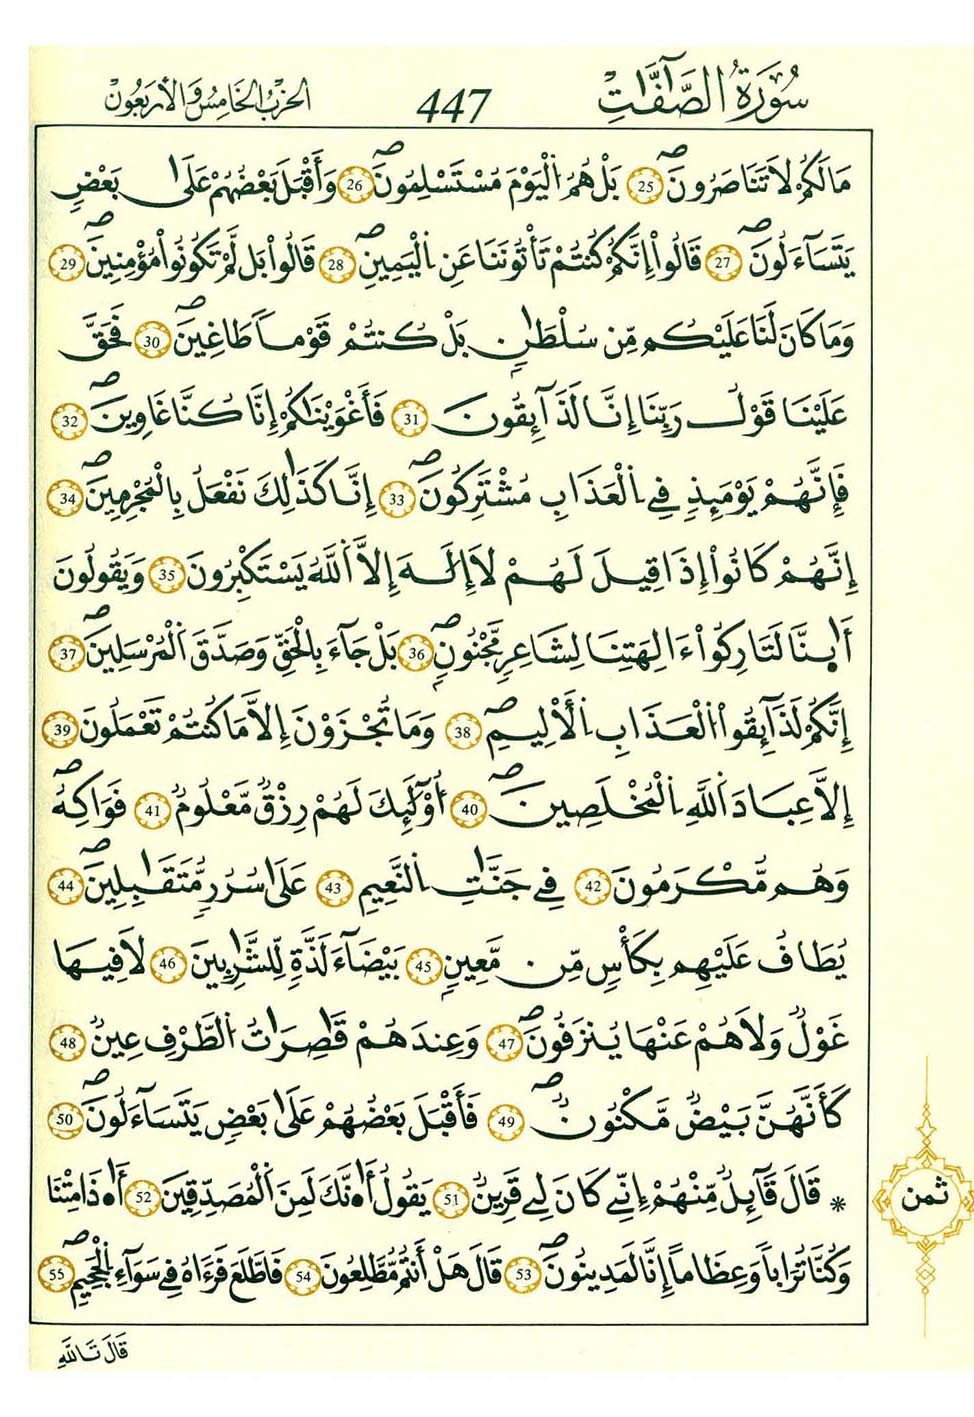 سُورَةُ الصَّآفَّٰتِ 447 الحِزْبُ الخَامِسُ وَالأَرْبَعُونَ
مَا لَكُمْ لَا تَنَاصَرُونَۖ 25 بَلْ هُمُ اُ۬لْيَوْمَ مُسْتَسْلِمُونَۖ 26 وَأَقْبَلَ بَعْضُهُمْ عَلَىٰ بَعْضٖ
يَتَسَآءَلُونَۖ 27 قَالُوٓاْ إِنَّكُمْ كُنتُمْ تَأْتُونَنَا عَنِ اِ۬لْيَمِينِۖ 28 قَالُواْ بَل لَّمْ تَكُونُواْ مُؤْمِنِينَۖ 29
وَمَا كَانَ لَنَا عَلَيْكُم مِّن سُلْطَٰنِۢ بَلْ كُنتُمْ قَوْماٗ طَٰغِينَۖ 30 فَحَقَّ
عَلَيْنَا قَوْلُ رَبِّنَا إِنَّا لَذَآئِقُونَ 31 فَأَغْوَيْنَٰكُمْ إِنَّا كُنَّا غَٰوِينَۖ 32
فَإِنَّهُمْ يَوْمَئِذٖ فِے اِ۬لْعَذَابِ مُشْتَرِكُونَۖ 33 إِنَّا كَذَٰلِكَ نَفْعَلُ بِالْمُجْرِمِينَۖ 34
إِنَّهُمْ كَانُوٓاْ إِذَا قِيلَ لَهُمْ لَآ إِلَٰهَ إِلَّا اَ۬للَّهُ يَسْتَكْبِرُونَ 35 وَيَقُولُونَ
أَئِنَّا لَتَارِكُوٓاْ ءَالِهَتِنَا لِشَاعِرٖ مَّجْنُونِۢۖ 36 بَلْ جَآءَ بِالْحَقِّ وَصَدَّقَ اَ۬لْمُرْسَلِينَۖ 37
إِنَّكُمْ لَذَآئِقُواْ اُ۬لْعَذَابِ اِ۬لْأَلِيمِۖ 38 وَمَا تُجْزَوْنَ إِلَّا مَا كُنتُمْ تَعْمَلُونَ 39
إِلَّا عِبَادَ اَ۬للَّهِ اِ۬لْمُخْلَصِينَۖ 40 أُوْلَٰٓئِكَ لَهُمْ رِزْقٞ مَّعْلُومٞ 41 فَوَٰكِهُۖ
وَهُم مُّكْرَمُونَ 42 فِے جَنَّٰتِ اِ۬لنَّعِيمِ 43 عَلَىٰ سُرُرٖ مُّتَقَٰبِلِينَۖ 44
يُطَافُ عَلَيْهِم بِكَأْسٖ مِّن مَّعِينِۢ 45 بَيْضَآءَ لَذَّةٖ لِّلشَّٰرِبِينَ 46 لَا فِيهَا
غَوْلٞ وَلَا هُمْ عَنْهَا يُنزَفُونَۖ 47 وَعِندَهُمْ قَٰصِرَٰتُ اُ۬لطَّرْفِ عِينٞ 48
كَأَنَّهُنَّ بَيْضٞ مَّكْنُونٞۖ 49 فَأَقْبَلَ بَعْضُهُمْ عَلَىٰ بَعْضٖ يَتَسَآءَلُونَۖ 50
* قَالَ قَآئِلٞ مِّنْهُمْ إِنِّے كَانَ لِے قَرِينٞ 51 يَقُولُ أَ.نَّكَ لَمِنَ اَ۬لْمُصَدِّقِينَ 52 أَ.ذَا مِتْنَا
ثمن
وَكُنَّا تُرَاباٗ وَعِظَٰماً إِنَّا لَمَدِينُونَۖ 53 قَالَ هَلْ أَنتُم مُّطَّلِعُونَ 54 فَاطَّلَعَ فَرَءَاهُ فِے سَوَآءِ اِ۬لْجَحِيمِۖ 55
قَالَ تَاللَّهِ